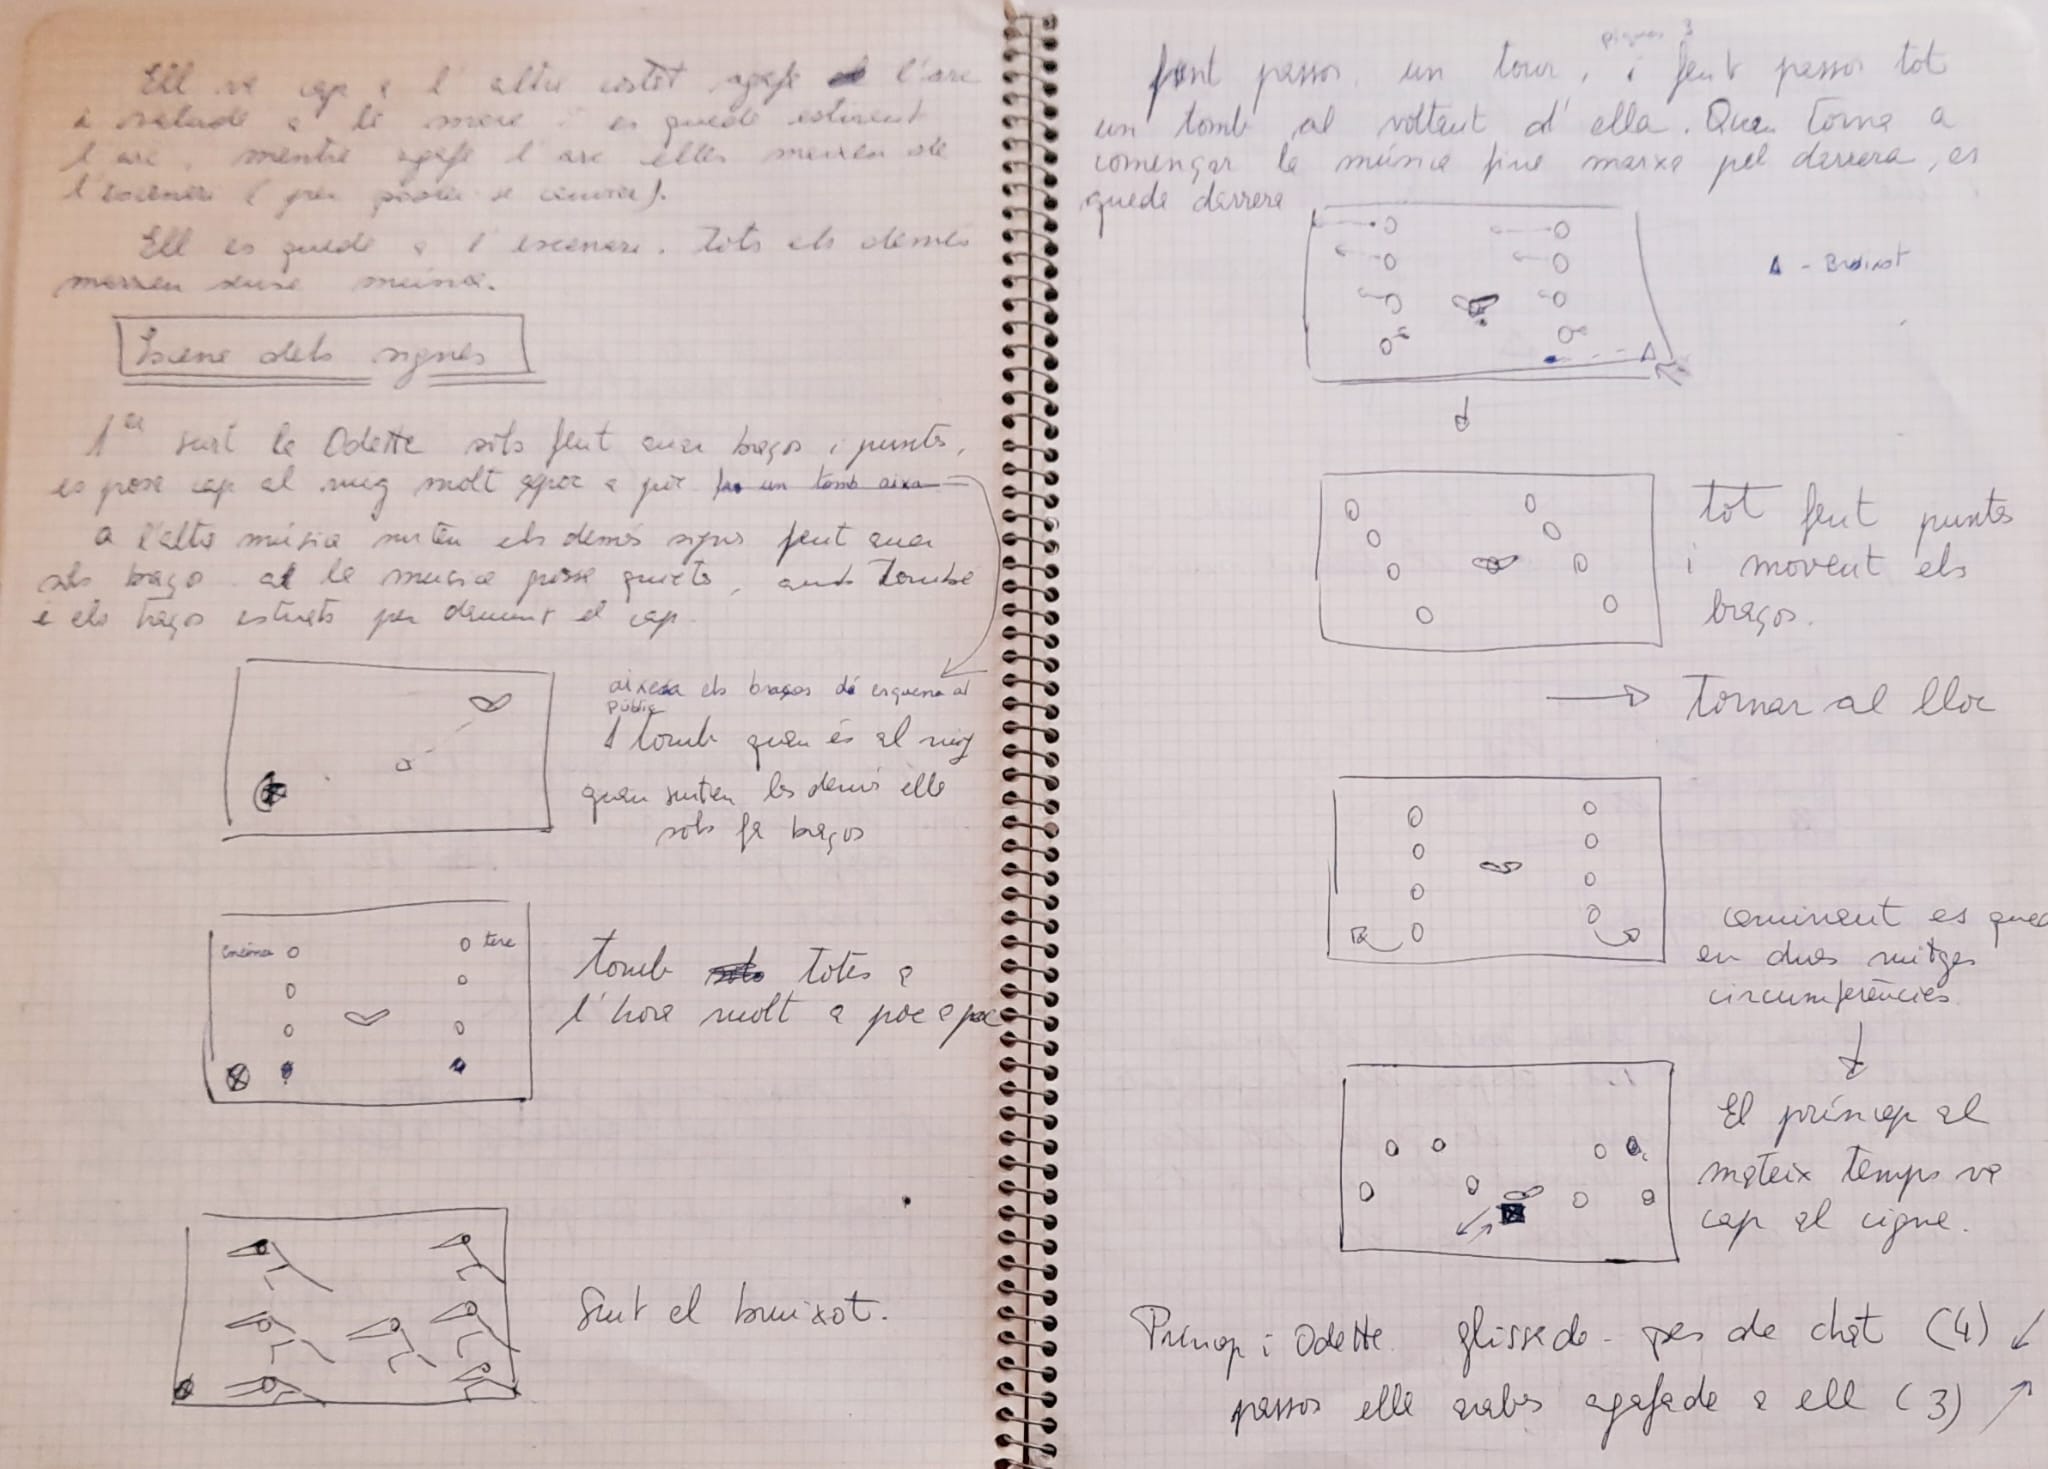 Ell va cap a l'altre costat agafa l'arc
i salude a la mare i es quede estirant
l'arc, mentre agafe l'arc elles marxen de
l'escenari (per poder se canviar).
Ell es quede a l'escenari. Tots els demés
marxen sense música.
Escene dels signes
1er surt la Odette sols fent anar braços i puntes,
es pose cap al mig molt apoc a poc fa un tomb aixa
a l'altra música surten els demés signes fent anar
sols braços al la musica posse quiets, amb tombe
i els braços estirats per damunt el cap.
aixeca els braços d'esquena al
públic
1 tomb quan és al mig
quan surten les demés elle
sols fa braços
tere
tomb totes a
l'hora molt a poc a poc
Surt el bruixot.
piques 3
fent passos, un tour, i fent passos tot
un tomb al voltant d'ella. Quan torna a
començar la música fine marxa pel darrera, es
quede darrere
Δ - Bruixot
tot fent puntes
i movent els
braços.
Tornar al lloc
caminant es qued
en dues mitges
circumferències.
El príncep al
mateix temps va
cap al cigne.
Príncep i Odette glissade - pas de chat (4)
passos elle arabes agafade a ell (3)